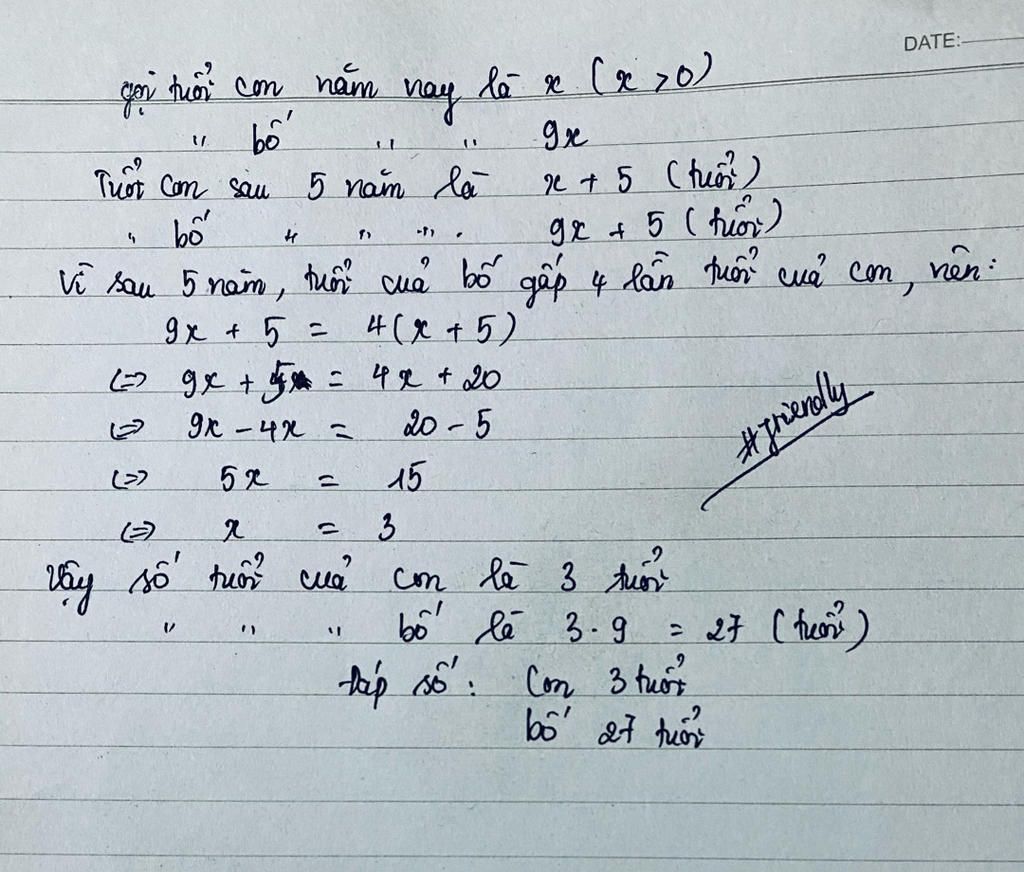 DATE:
gọi tuổi con năm nay là x (x > 0)
" bố " " 9x
Tuổi con sau 5 năm là x + 5 (tuổi)
" bố " " " 9x + 5 (tuổi)
Vì sau 5 năm, tuổi của bố gấp 4 lần tuổi của con, nên:
9x + 5 = 4(x + 5)
⇔ 9x + 5 = 4x + 20
⇔ 9x - 4x = 20 - 5
⇔ 5x = 15
⇔ x = 3
#friendly
Vậy số tuổi của con là 3 tuổi
" " " bố là 3 . 9 = 27 (tuổi)
Đáp số: Con 3 tuổi
bố 27 tuổi